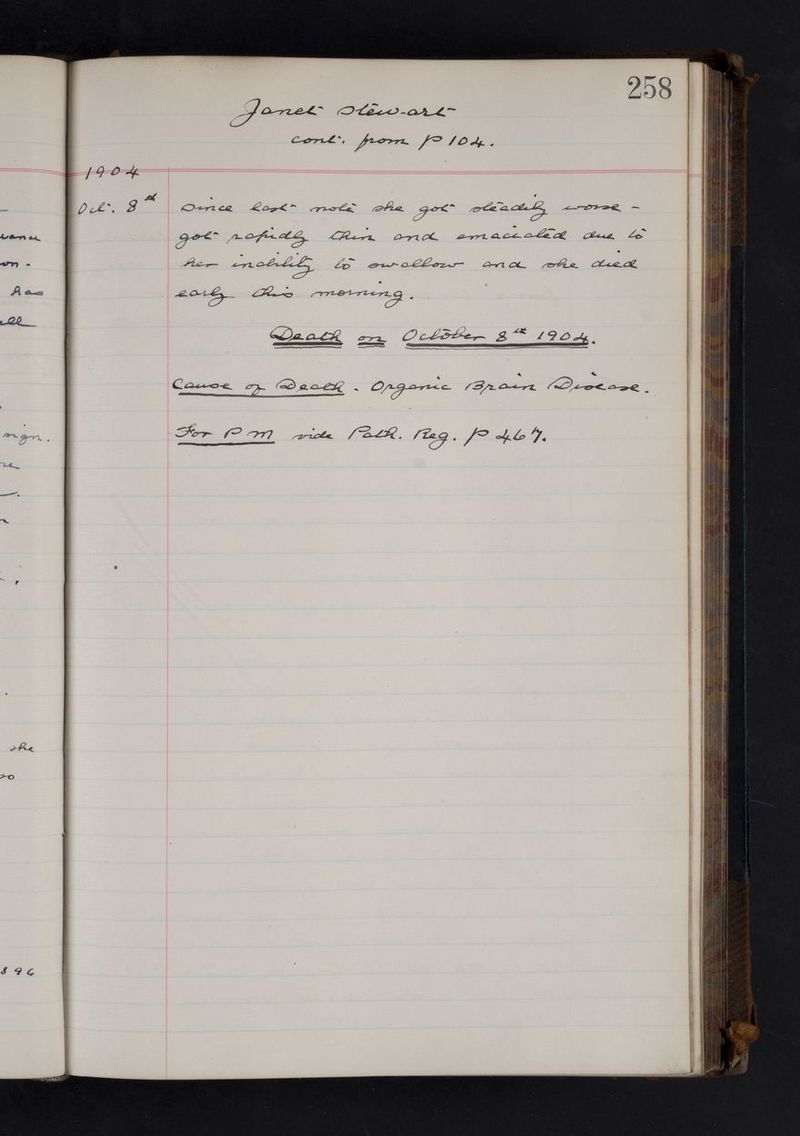 258
Janet Stewart
cont. from p 104.
1904
Oct. 8th since last note she got steadily worse -
got rapidly thin and emaciated due to
her inability to swallow and she died
early this morning.
Death on October 8th 1904.
Cause of Death - Organic Brain Disease.
For P M vide Path. Reg. p 467.
on -
has
sign.
she
so
896